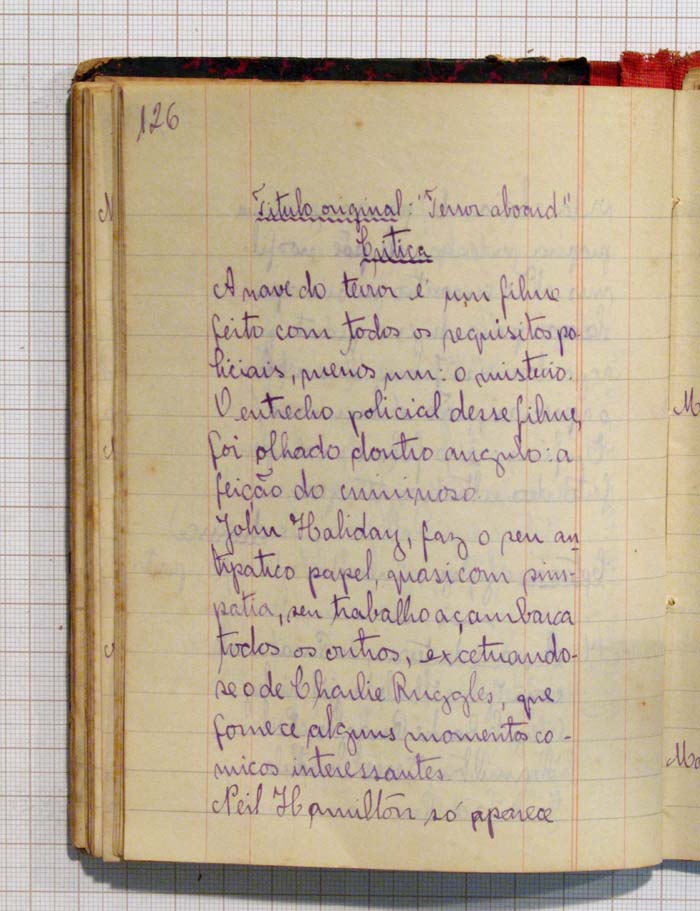 126
Titulo original: "Terror aboard"
Critica
A nave do terror é um filme
feito com todos os requisitos po-
liciais, menos um: o misterio.
O entrecho policial desse filme,
foi olhado doutro angulo: a
feição do criminoso.
John Haliday, faz o seu an-
tipatico papel, quasi com sim-
patia, seu trabalho açambarca
todos os outros, excetuando-
se o de Charlie Ruggles, que
fornece alguns momentos co-
micos interessantes
Neil Hamilton só aparece
M
Ma